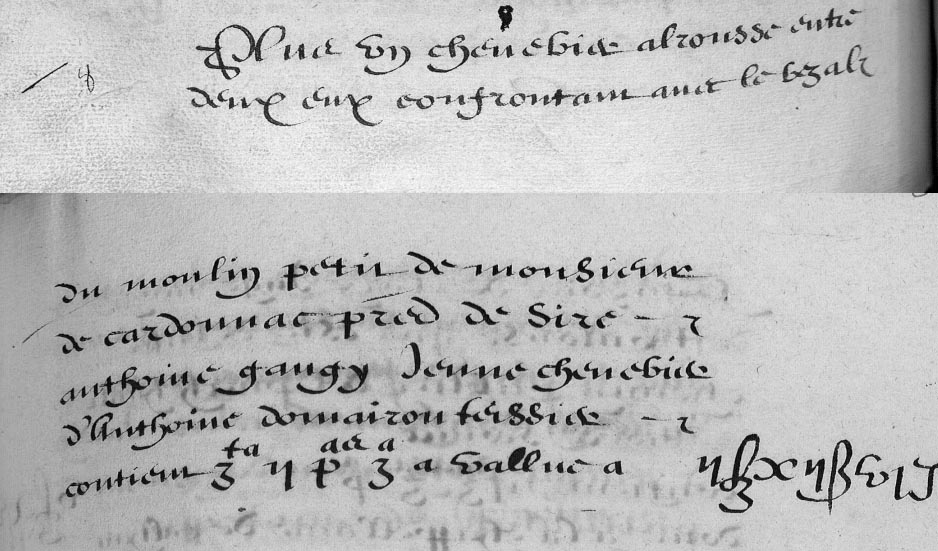 Plus ung chenebier alrousse entre
deux eux confrontant avec le bezal
du moulin petit de monsieur
de cardonnac pred de sire
anthoine gaugy Jeune chenebier
d'Anthoine domairon teissier
contient a vallue a